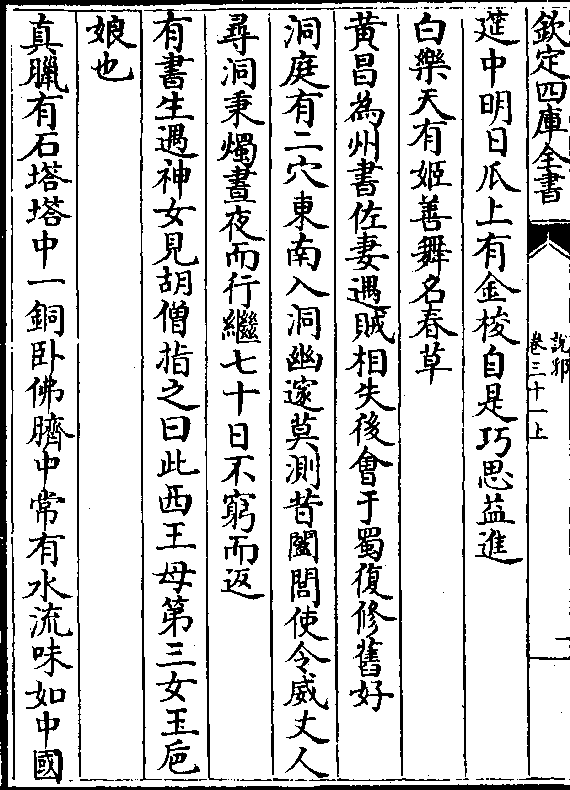 欽定四庫全書
說郛
卷三十一上
莚中明日瓜上有金梭自是巧思益進
白樂天有姬善舞名春草
黃昌為州書佐妻遇賊相失後會于蜀復修舊好
洞庭有二穴東南入洞幽邃莫測昔闔閭使令威丈人
尋洞秉燭晝夜而行繼七十日不窮而返
有書生遇神女見胡僧指之曰此西王母第三女玉巵
娘也
真臘有石塔塔中一銅臥佛臍中常有水流味如中國